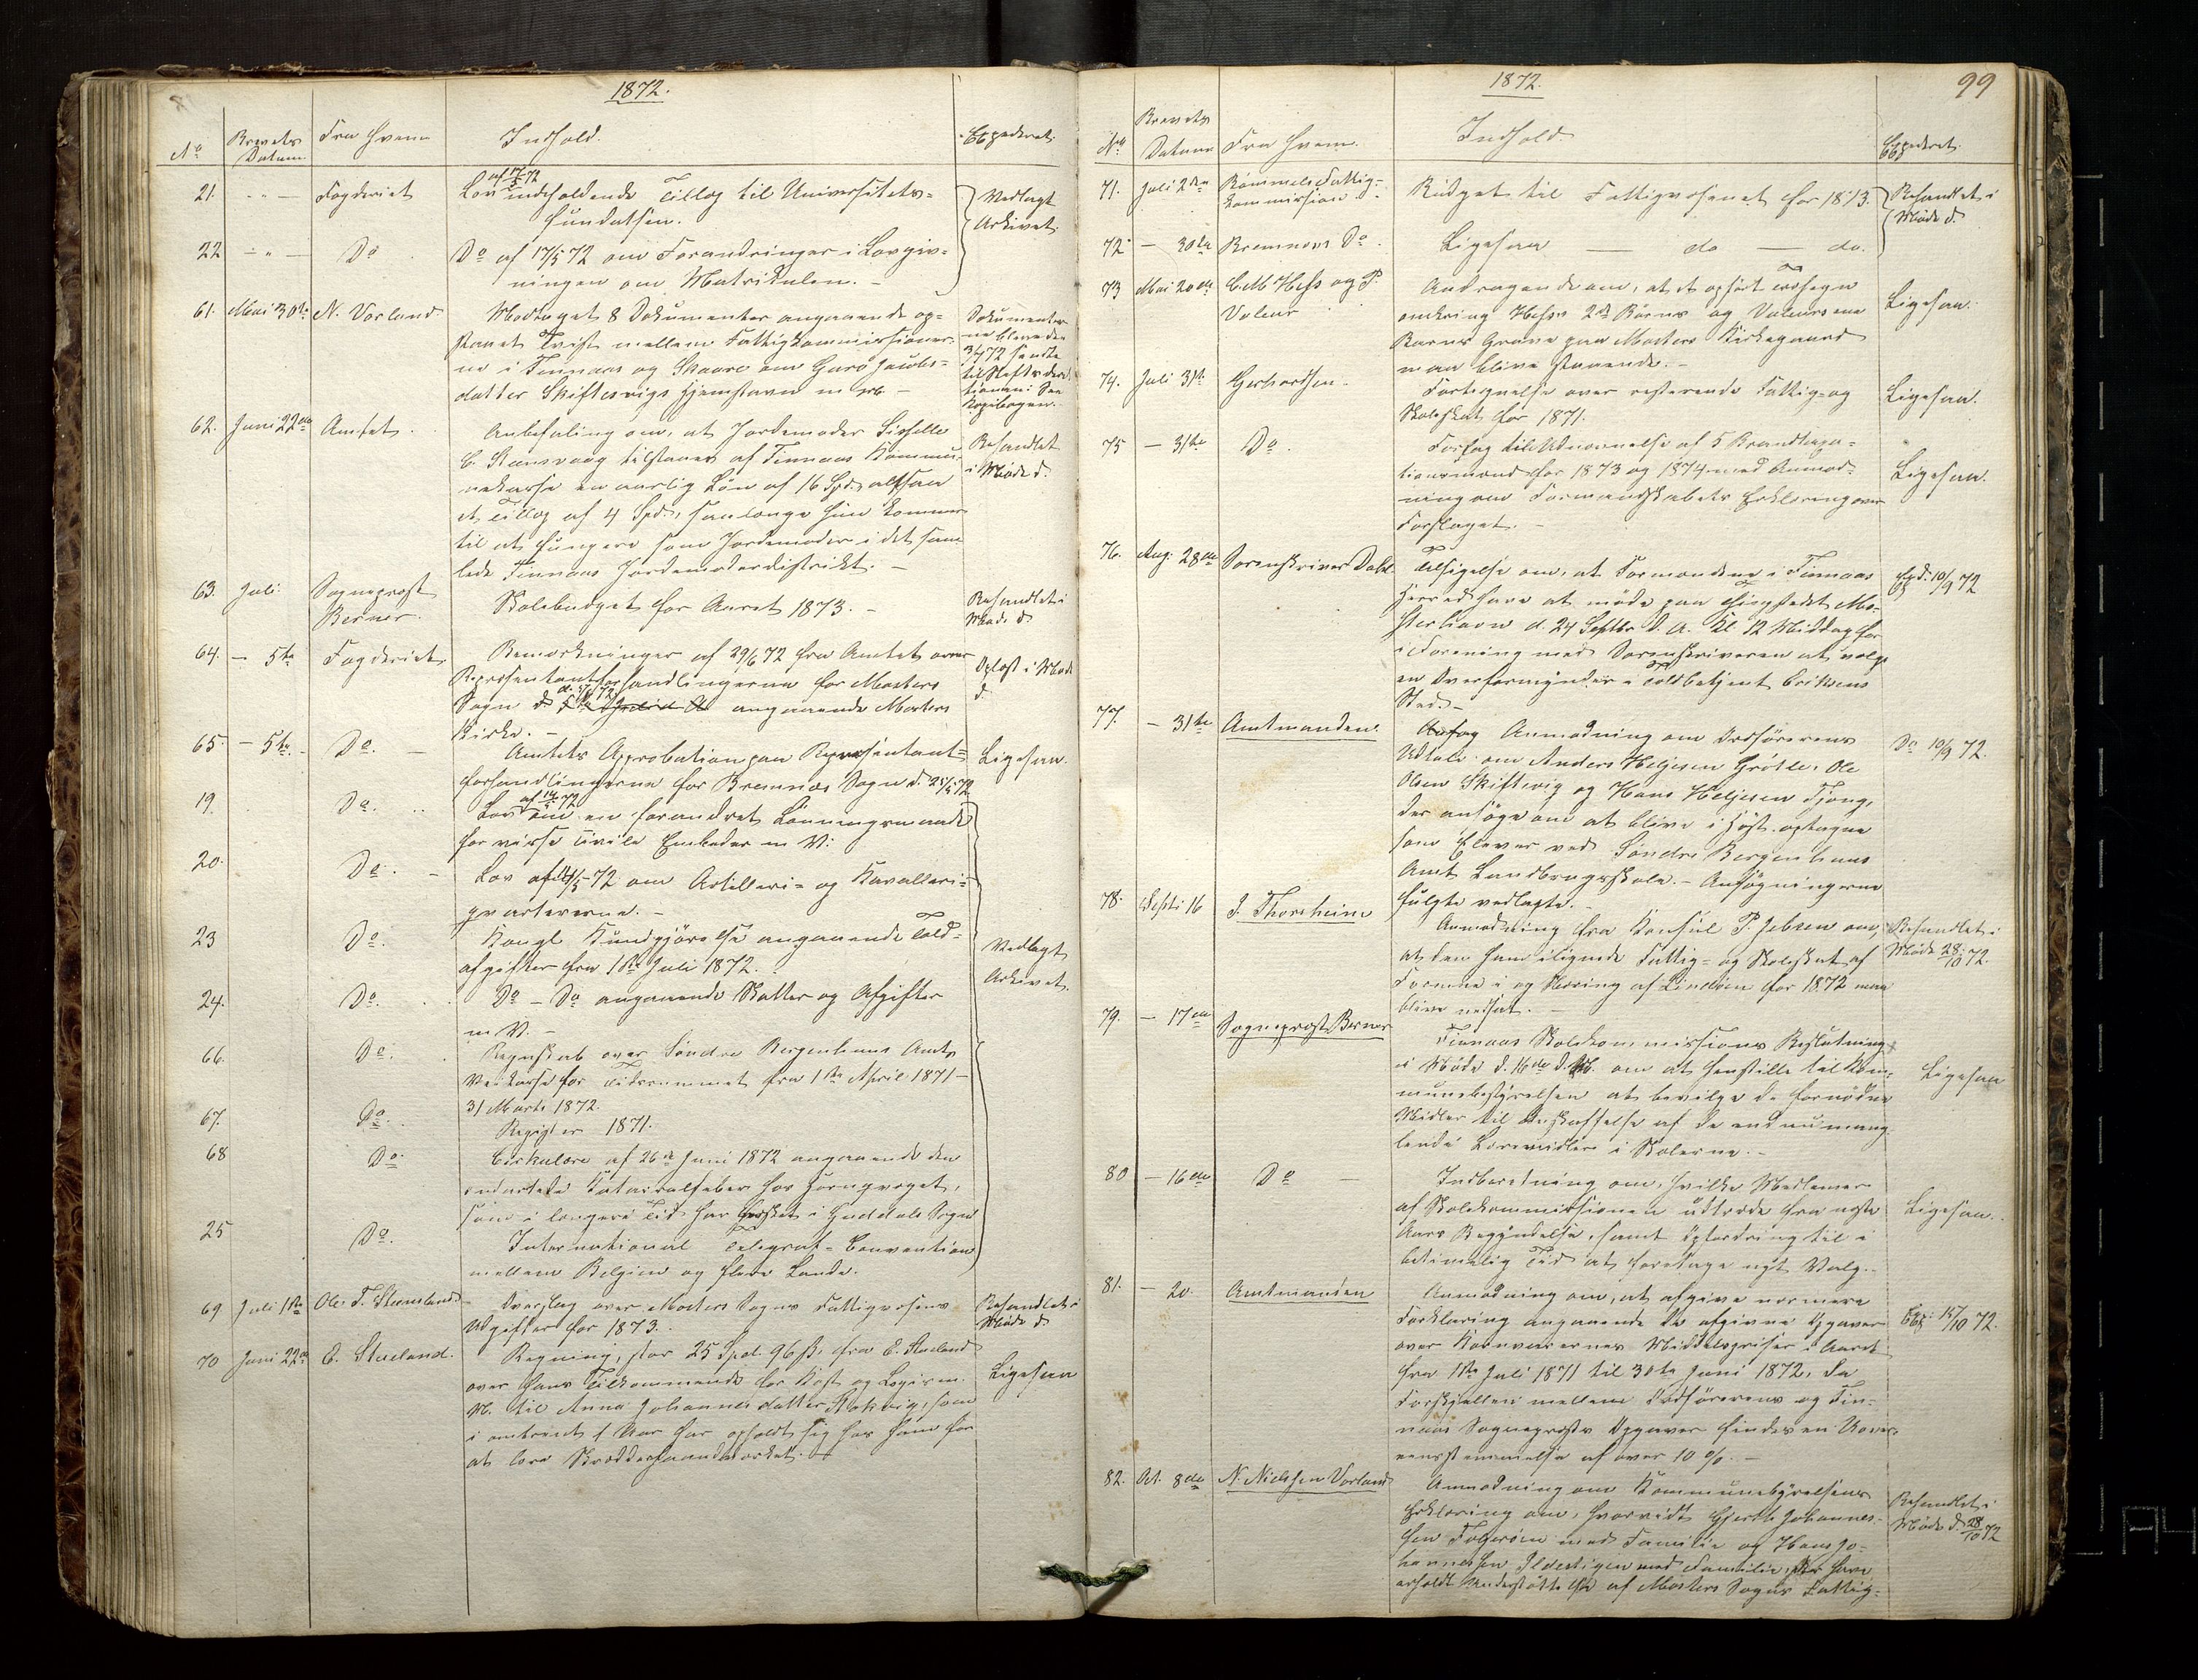 1872.
No
Brevets Datum
Fra Hvem
Indhold.
Expederet.
21. " — Fogderiet
Lov af 17/5 72 indeholdende Tillæg til Universitets-
fundatsen.
Vedlagt
Arkivet.
22 — " — Do
Do af 17/5 72 om Forandringer i Lovgiv-
ningen om Matrikulen. —
61. Mai 30te N. Vorland.
Modtaget 8 Dokumenter angaaende op-
staaet Tvist mellem Fattigkommissioner-
ne i Finnaas og Skaare om Guro Jacobs-
datter Skiftesvigs Hjemstavn m. v. —
Dokumenter
ne bleve den
sendte
til Stiftsdirek
tionen: See
Kopibogen.
62. Juni 22de Amtet.
Anbefaling om, at Jordemoder Sisselle
C. Steensvaag tilstaaes af Finnaas Kommu-
nekasse en aarlig Løn af 16 Spd., altsaa
et Tillæg af 4 Spd., saalænge hun kommer
til at fungere som Jordemoder i det sam
lede Finnaas Jordemoderdistrikt. —
Behandlet
i Møde d.
63. Juli Sogneprest
Berner.
Skolebudget for Aaret 1873. —
Behandlet i
Møde d
64. — 5te Fogderiet
Bemærkninger af 29/6 72 fra Amtet over
Repræsentantforhandlingerne for Mosters
Sogn d. angaaende Mosters
Kirke. —
Oplæst i Møde
d.
65. — 5te. Do. —
Amtets Approbation paa Repræsentant-
forhandlingerne for Bremnæs Sogn d. 25/5 72
Ligesaa.
19. Do.
Lov af 14/5 72 om en forandret Lønningsmaade
for visse civile Embeder m. V.
20. Do. —
Lov af 72 om Artilleri- og Kavalleri-
qvartererne. —
23 Do.
Kongl. Kundgjørelse angaaende Told-
afgifter fra 1ste Juli 1872.
Vedlagt
Arkivet.
24. Do.
Do — Do angaaende Skatter og Afgifter
m. V. —
66. Do.
Regnskab over Søndre Bergenhuus Amts
Veikasse for Tidsrummet fra 1ste April 1871 —
31 Marts 1872.
67. Do.
Register 1871.
68 Do.
Cirkulære af 26de Juni 1872 angaaende den
ondartede Katarralfeber hos Hornqvæget,
som i længere Tid har hersket i Sogn
25 Do.
International Telegraf-Convention
mellem Belgien og flere Lande.
69 Juli 1ste Ole T. Steensland
Overslag over Mosters Sogns Fattigvæsens
Udgifter for 1873.
Behandlet i
Møde d.
70 Juni 22de E. Stueland.
Regning, stor 25 Spd. 96 ß, fra E. Stueland
over hans Tilkommende for Kost og Logis m.
M. til Anna Johannesdatter, som
i omtrent 1 Aar har opholdt sig hos ham for
at lære Skrædderhaandværket.
Ligesaa
1872.
99
No
Brevets
Datum
Fra Hvem.
Indhold
Expederet.
71. Juli 2den Bømmels Fattig-
kommission
Budget til Fattigvæsenet for 1873.
Behandlet i
Møde d.
72 — 30te Bremnæs Do.
Ligesaa — do — do.
73 Mai 20de C. M. Hess og P.
Valeur
Andragende om, at et opført Træhegn
omkring Hess's 2de Børns og Valeurs ene
Barns Grave paa Mosters Kirkegaard
maa blive staaende. —
Ligesaa.
74. Juli 31te Gerhardsen.
Fortegnelse over resterende Fattig- og
Skoleskat for 1871.
Ligesaa.
75 — 31te Do.
Forslag til Udnævnelse af 5 Brandtaxa-
tionsmænd for 1873 og 1874 med Anmod-
ning om Formandskabets Erklæring over
Forslaget. —
Ligesaa.
76. Aug. 28de Sorenskriver Dahl
Tilsigelse om, at Formændene i Finnaas
Herred have at møde paa Thingstedet Mo-
sterhavn d. 24 Septbr d. A. Kl. 12 Middag for
i Forening med Sorenskriveren at vælge
en Overformynder i Toldbetjent Eriksens
Sted. —
Exp. 10/9 72
77. — 31te Amtmanden.
Anmodning om Ordførerens
Udtale om Anders Heljesen Grotle, Ole
Olsen Skiftesvig og Hans Heljesen Tjong,
der ansøge om at blive i Høst optagne
som Elever ved Søndre Bergenhuus
Amts Landbrugsskole. — Ansøgningerne
fulgte vedlagte. —
Do 10/9 72.
78. Septr 16 J. Thorsheim
Anmodning fra Konsul P. Jebsen om,
at den ham ilignede Fattig- og Skoleskat af
Formue i og Næring af Lindøen for 1872 maa
blive nedsat. —
Behandlet i
Møde 28/10 72.
79. — 17de Sogneprest Berner
Finnaas Skolekommissions Beslutning
i Møde d. 16de d. M. om at henstille til Kom-
munebestyrelsen at bevilge de fornødne
Midler til Anskaffelse af de endnu mang-
lende Læremidler i Skolerne. —
Ligesaa
80 — 16de Do —
Indberetning om, hvilke Medlemer
af Skolekommissionen udtræde fra næste
Aars Begyndelse, samt Opfordring til i
betimelig Tid at foretage nyt Valg. —
Ligesaa.
81. — 20. Amtmanden
Anmodning om, at afgive nærmere
Forklaring angaaende de afgivne Opgaver
over Kornvarernes Middelspriser i Aaret
fra 1ste Juli 1871 til 30te Juni 1872, da
Forskjellen mellem Ordførerens og Fin-
naas Sogneprests Opgaver findes en Uover-
eensstemmelse af over 10 %. —
Exp. 15/10 72.
82. Oct. 8de N. Nielsen Vorland
Anmodning om Kommunebestyrelsens
Erklæring om, hvorvidt Gjerth Johannes-
sen Folgerøen med Familie og Hans Jo-
hannessen med Familie, der have
erholdt Understøttelse af Mosters Sogns Fattig-
Behandlet i
Møde d. 28/10 72